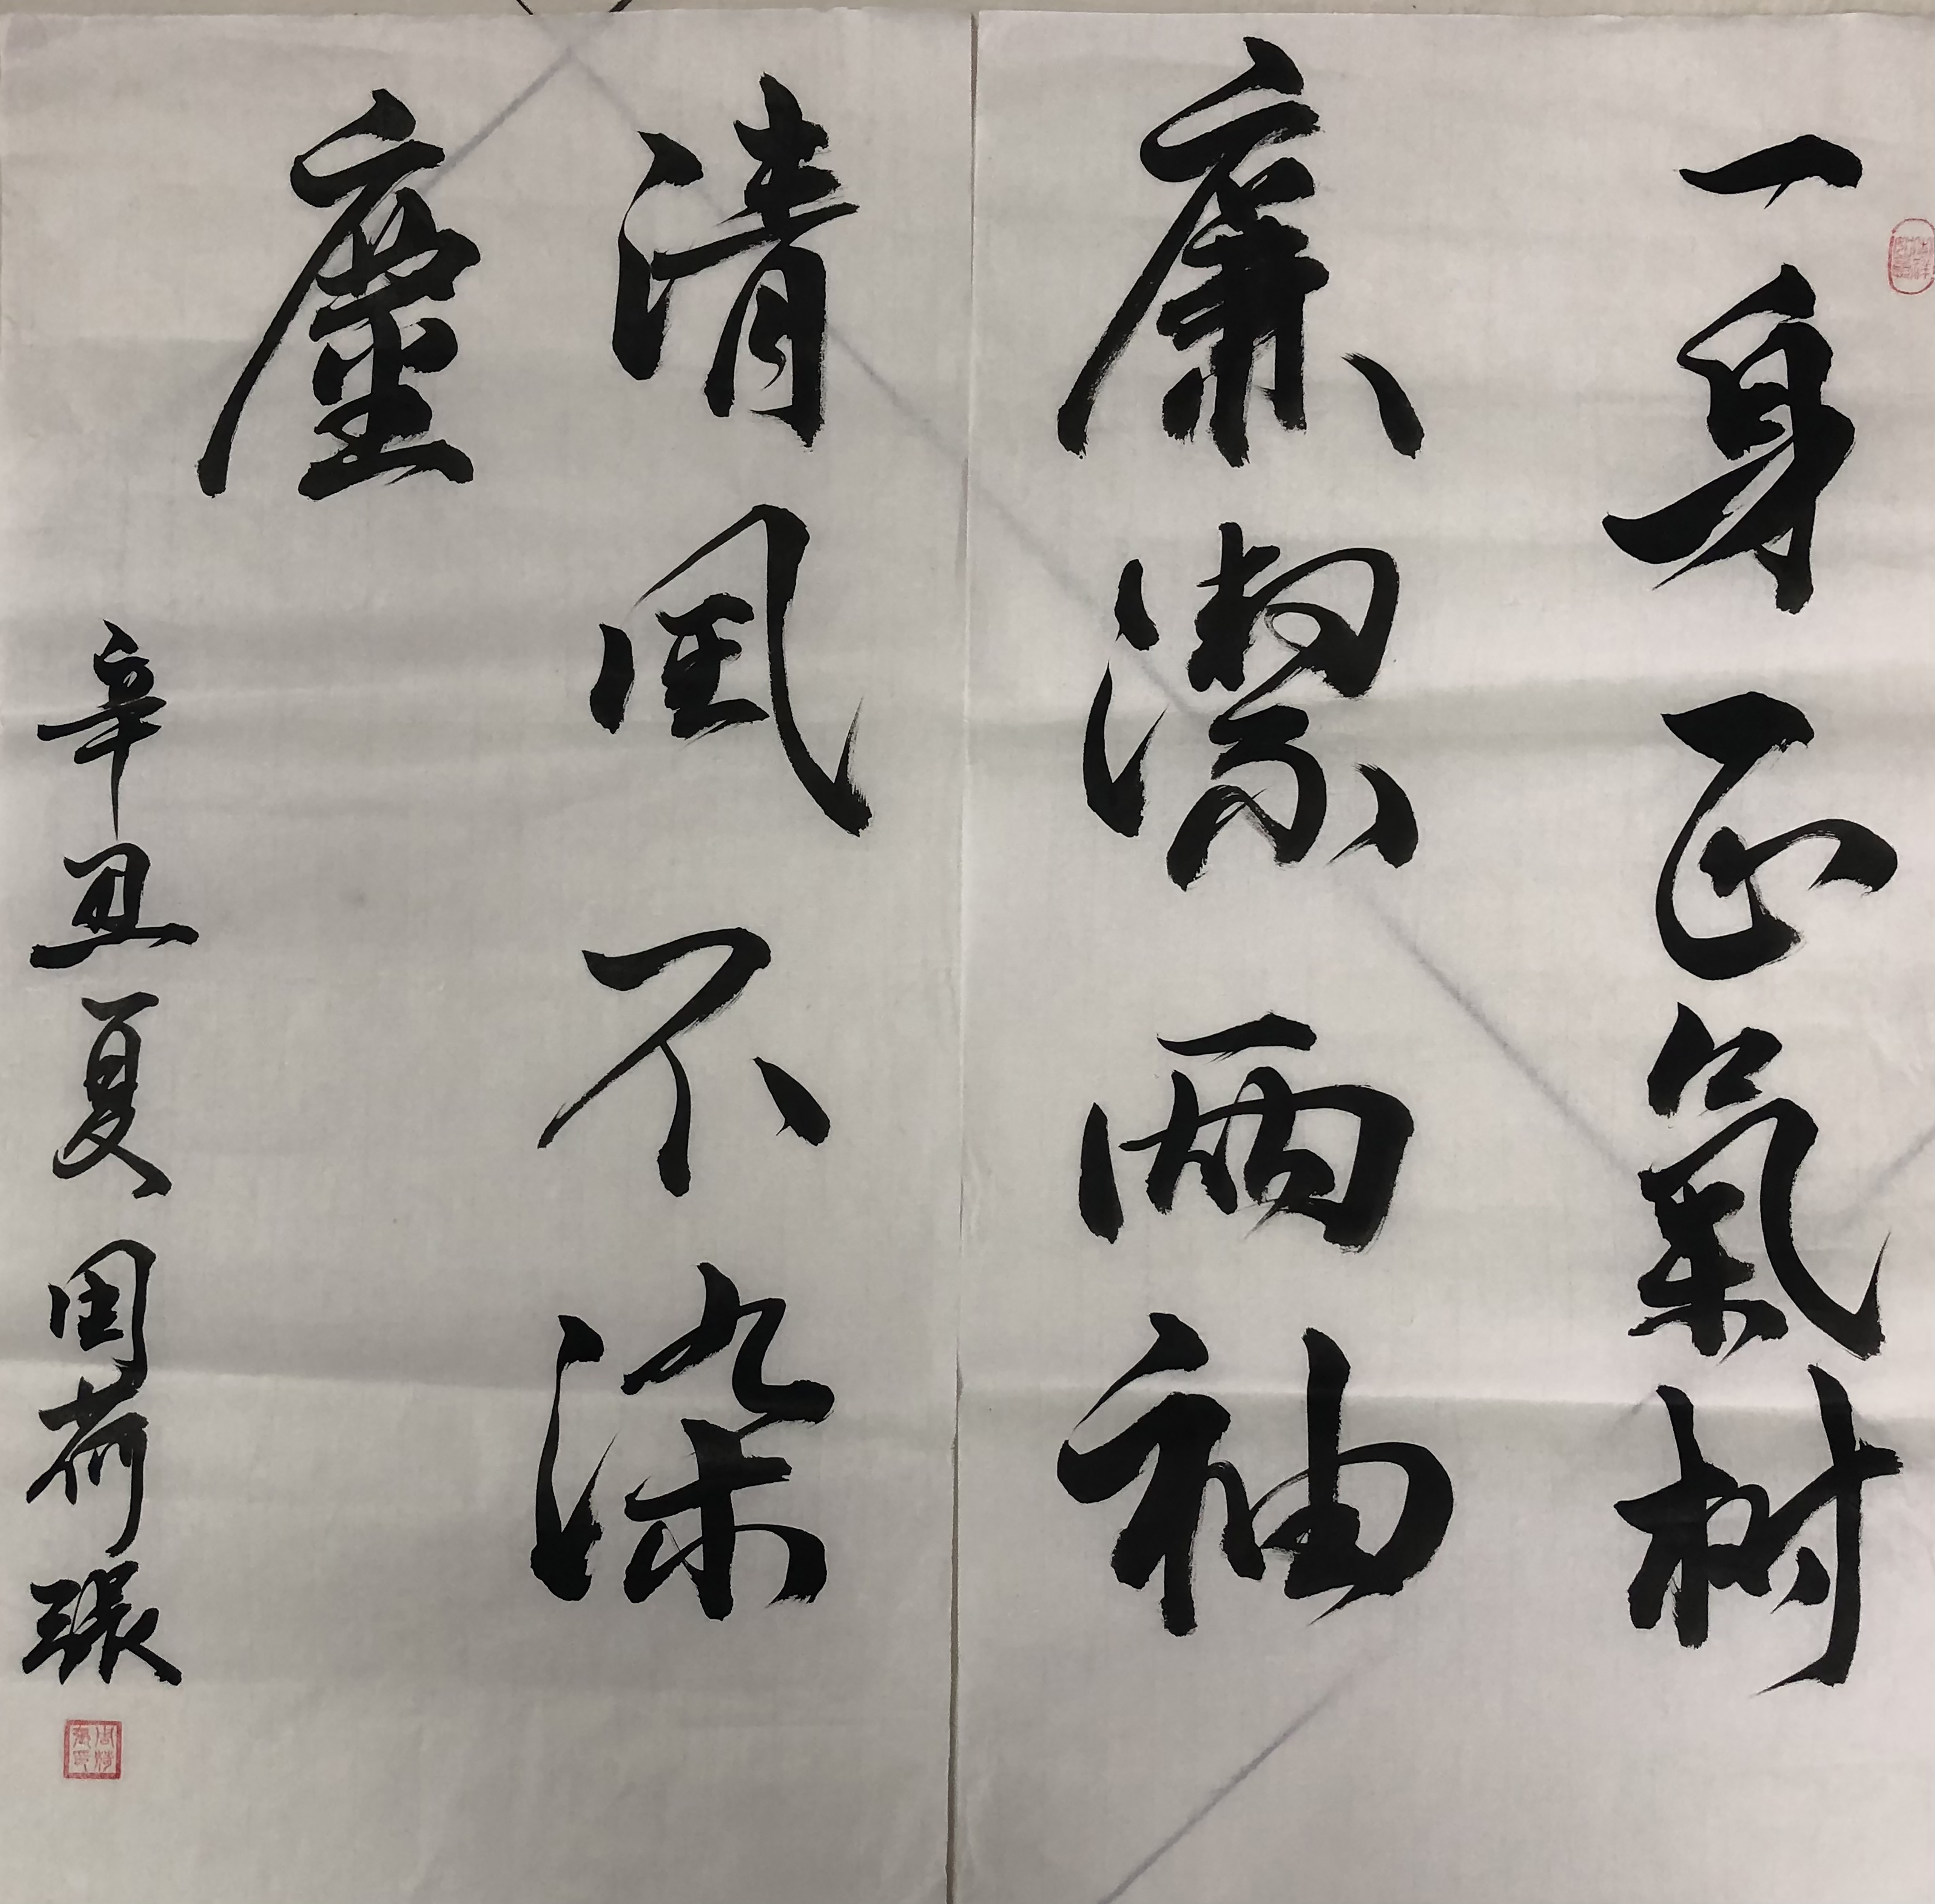 一身正氣树
廉潔两袖
清風不染
塵
辛丑夏周荷張